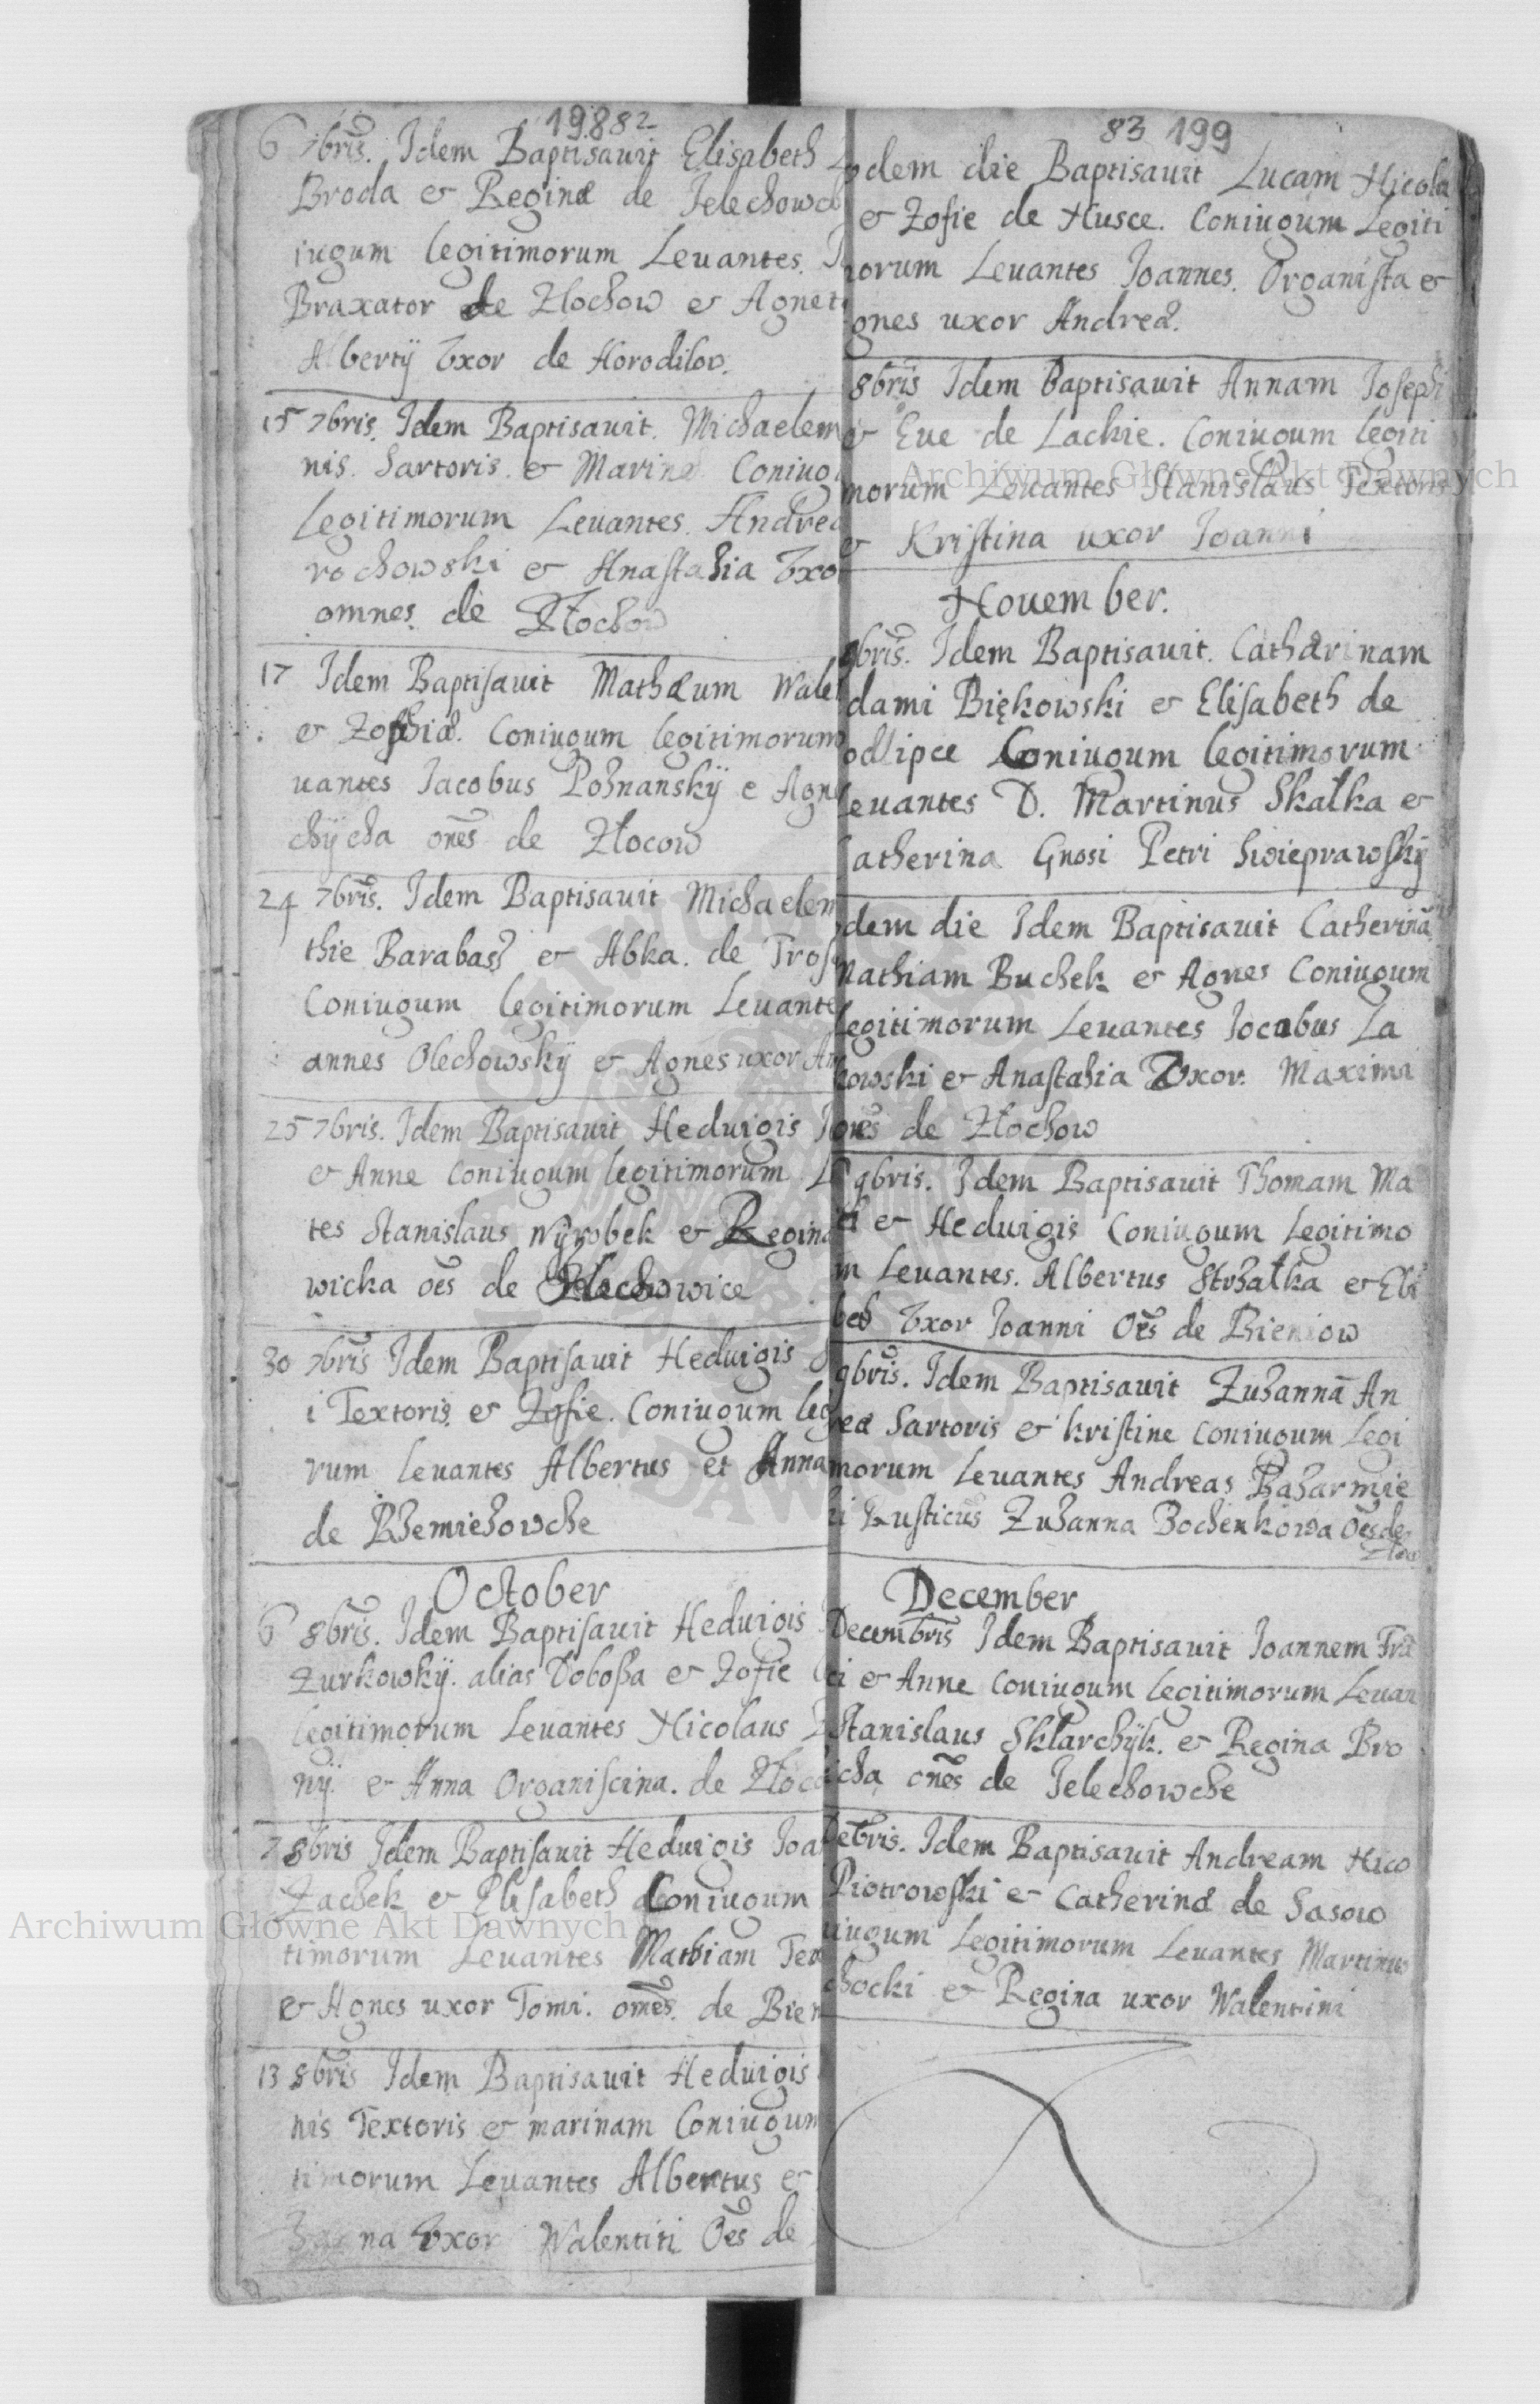 198 82
6 7bris. Idem Baptisauit Elisabeth
Broda & Reginæ de Jelechowc
iugum legitimorum Leuantes.
Braxator de Zlochow & Agnet
Albertÿ Vxor de Horodilow.
15 7bris. Idem Baptisauit. Michaelem
nis. Sartoris. & Marinæ Coniug
Legitimorum Leuantes. Andrea
rochowski & Anastasia Vxo
omnes. de Złochow
17 Idem Baptisauit Mathæum Wale
& Zophiæ. Coniugum legitimorum
uantes Jacobus Poznanskÿ e Agn
chÿcha oñes de Złocow
24 7bris. Idem Baptisauit Michaelem
thie Barabasz & Abka. de Tros
Coniugum legitimorum Leuante
annes Olechowskÿ & Agnes uxor An
25 7bris. Idem Baptisauit Heduigis
& Anne Coniugum legitimorum L
tes Stanislaus Wÿrobek & Regina
wicka oẽs de
30 7bris Idem Baptisauit Heduigis
i Textoris & Zofie. Coniugum leg
rum leuantes Albertus et Anna
de
October
6 8bris. Idem Baptisauit Heduigis
Zurkowkÿ. alias Dobossa & Zofie
legitimorum Leuantes Nicolaus
nÿ. & Anna Organiscina. de Złoc
7 8bris Idem Baptisauit Heduigis Joa
Zachek & Elisabeth Coniugum
timorum Leuantes Mathiam Tex
& Agnes uxor Tomi. omẽs. de Bien
13 8bris Idem Baptisauit Heduigis
nis Textoris & marinam Coniugum
timorum Leuantes Albertus &
na Vxor Walentiti Oẽs de
83 199
dem die Baptisauit Lucam Nicola
& Zofie de Husce. Coniugum Legiti
morum Leuantes Joannes. Organista &
gnes uxor Andreæ.
8bris Idem baptisauit Annam Josephi
& Eue de Lackie. Coniugum legiti
morum Leuantes Stanislaus Textoris
& Kristina uxor Joanni
Nouember.
9bris. Idem Baptisauit. Catharinam
dami Biękowski & Elisabeth de
odlipce Coniugum legitimorum
Leuantes D. Martinus Skałka &
atherina Gnosi Petri Swieprawskÿ
dem die Idem Baptisauit Catherinã
Mathiam Buchek & Agnes Coniugum
Legitimorum Leuantes Jocabus Za
kowski & Anastasia Vxor. Maximi
oñes de Złochow
9bris. Idem Baptisauit Thomam Ma
& Heduigis Coniugum Legitimo
m Leuantes. Albertus Strzałka & Eli
beth Vxor Joanni Oẽs de Bieniow
9bris. Idem Baptisauit Zuzannã An
reæ Sartoris & kristine Coniugum Legi
morum Leuantes Andreas Bazarmie
ki Rusticus Zuzanna Bochenkowa Oẽs de
Złow
December
Decembris Idem Baptisauit Joannem Frã
ci & Anne Coniugum legitimorum Leuan
Stanislaus Sklarchÿk. & Regina Bro
icha oñes de Jelechowche
Debris. Idem Baptisauit Andream Nico
Piotrowski & Catherinæ de Sasow
iugum Legitimorum Leuantes Martinus
chocki & Regina uxor Walentini
Archiwum Główne Akt Dawnych
Archiwum Główne Akt Dawnych